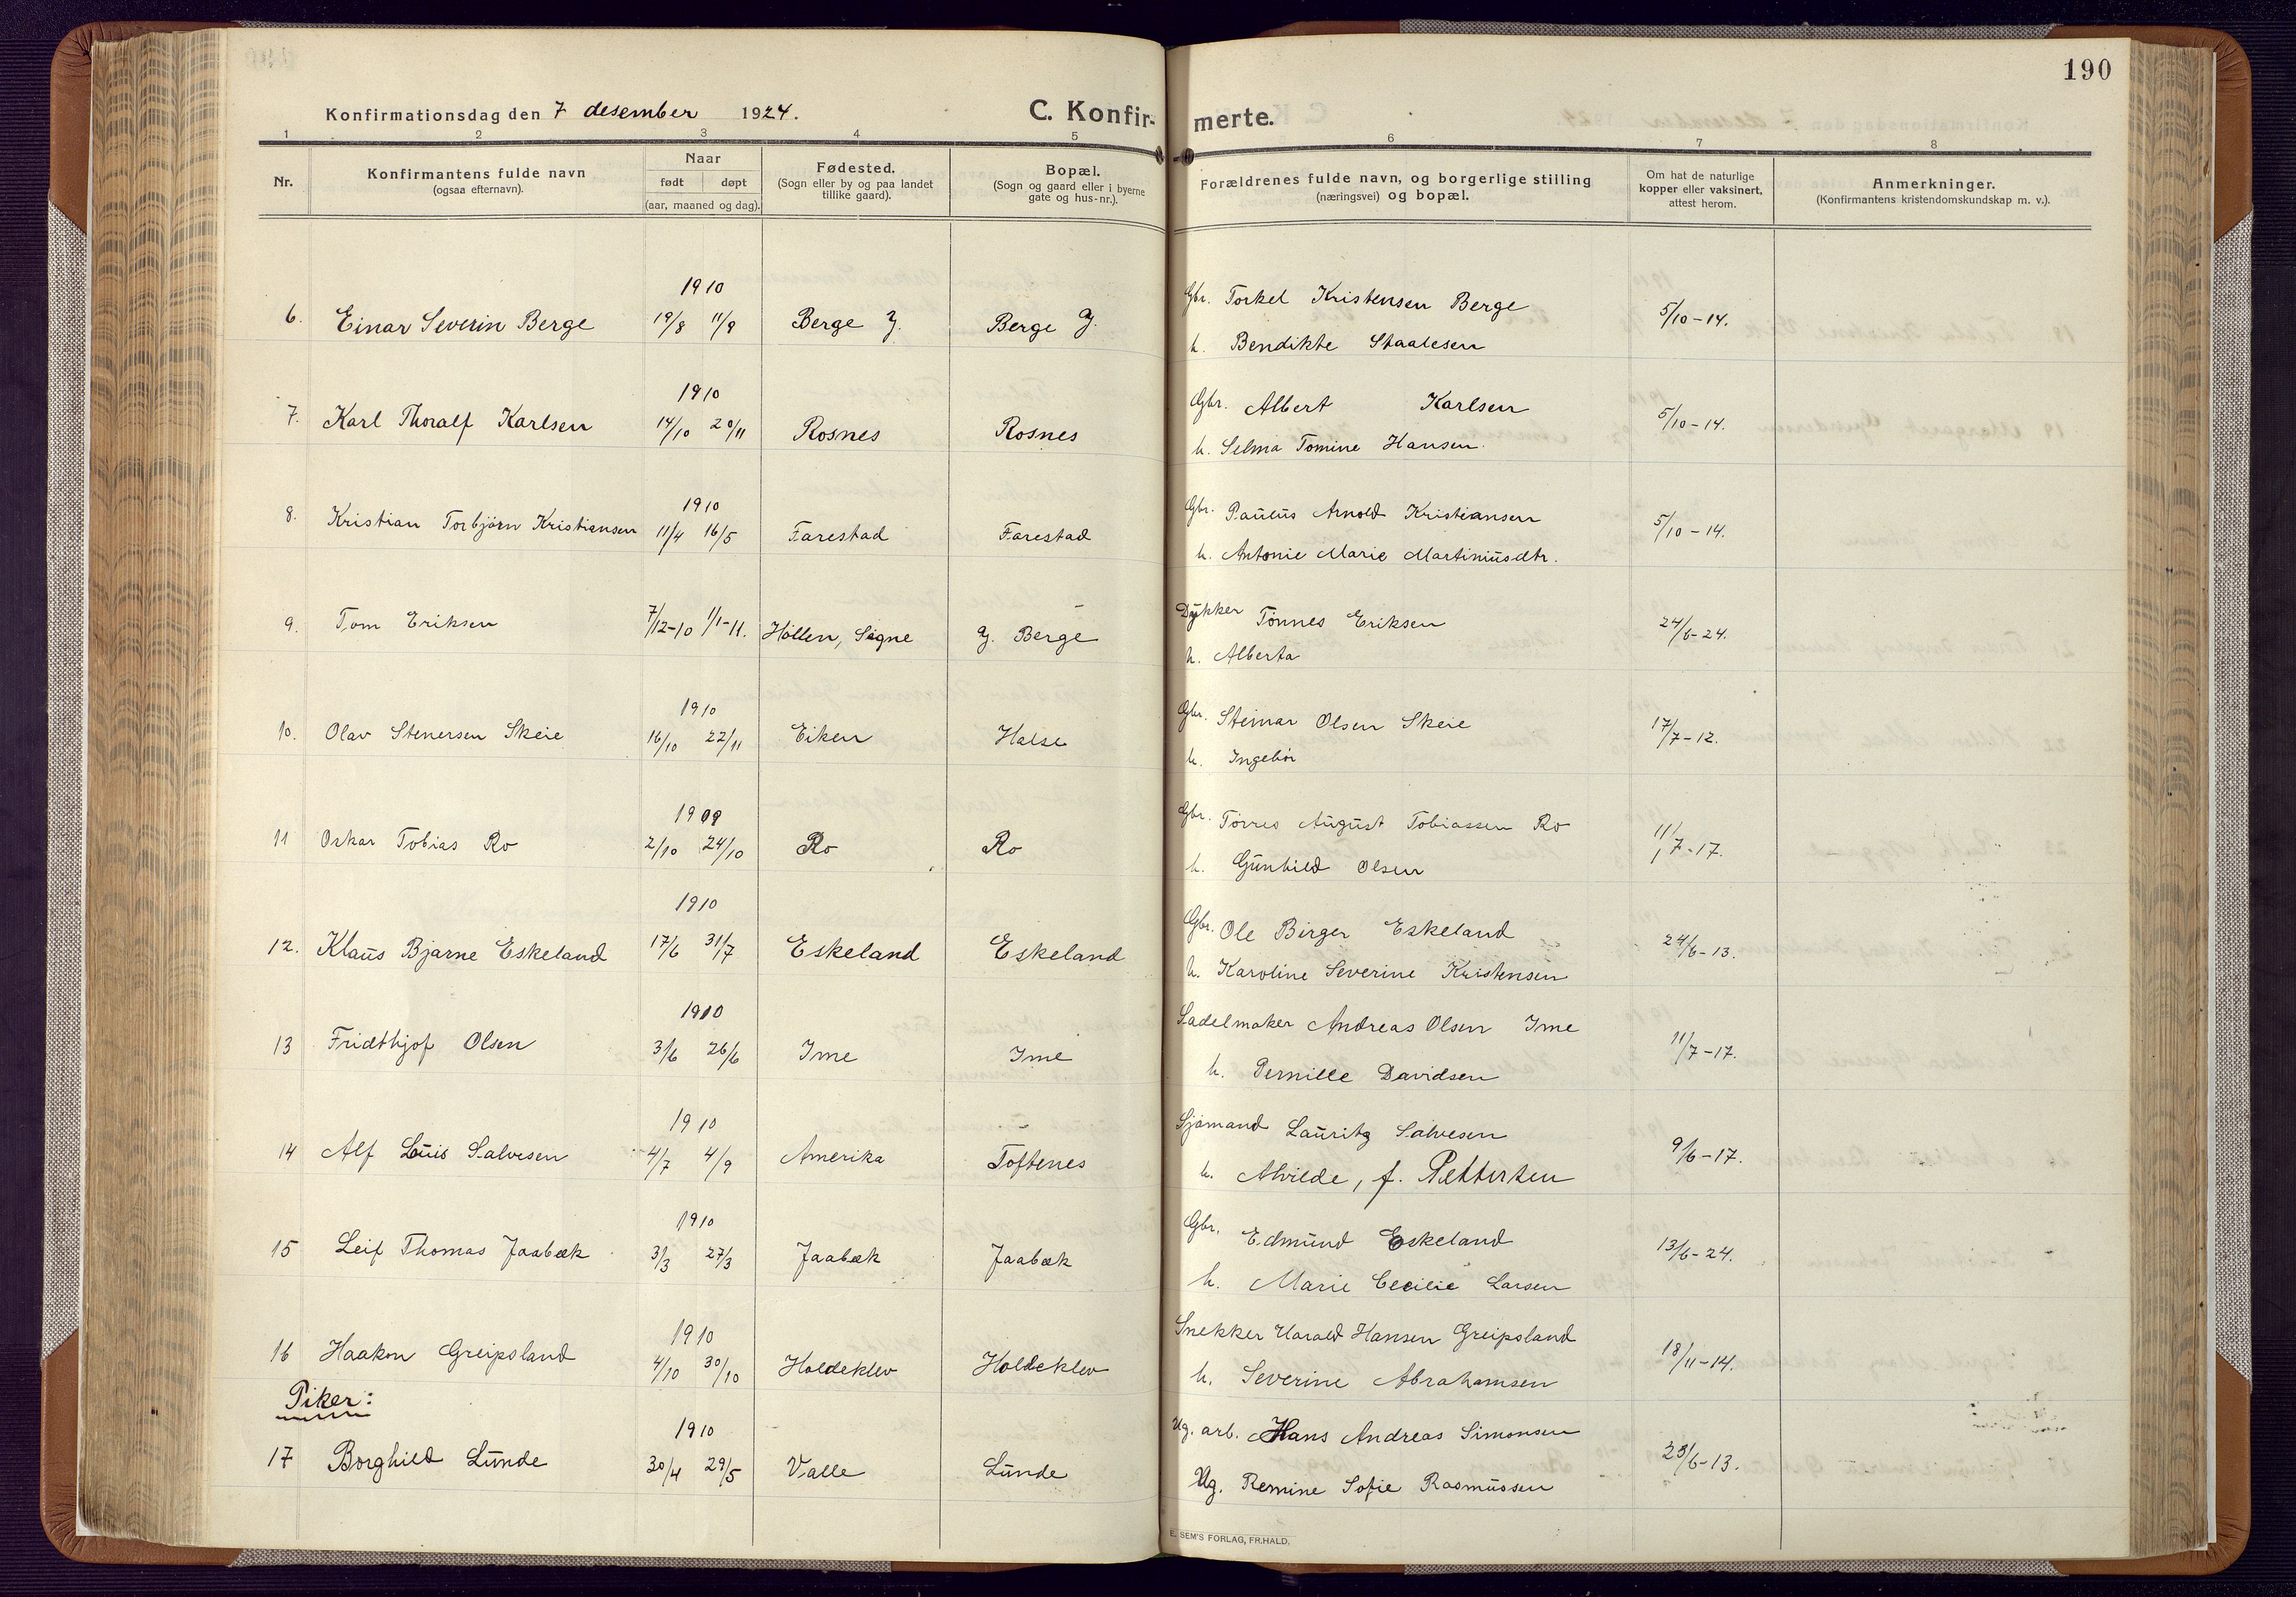 190
Konfirmationsdag den 7 desember 1924.
C. Konfir- merte.
1 2 3 4 5 6 7 8
Nr.
Konfirmantens fulde navn
(ogsaa efternavn).
Naar
født døpt
(aar, maaned og dag).
Fødested.
(Sogn eller by og paa landet
tillike gaard).
Bopæl.
(Sogn og gaard eller i byerne
gate og hus-nr.).
Forældrenes fulde navn, og borgerlige stilling
(næringsvei) og bopæl.
Om hat de naturlige
kopper eller vaksinert,
attest herom.
Anmerkninger.
(Konfirmantens kristendomskundskap m. v.).
1910
Gbr. Torkel Kristensen Berge
6. Einar Severin Berge 19/8 11/9 Berge Y. Berge Y. 5/10-14.
h. Bendikte Staalesen
1910
Gbr. Albert Karlsen
7. Karl Thoralf Karlsen 14/10 20/11 Rosnes Rosnes 5/10-14.
h. Selma Tomine Hansen
1910
Gbr. Paulus Arnold Kristiansen
8. Kristian Torbjørn Kristiansen 11/4 16/5 Farestad Farestad 5/10-14.
h. Antonie Marie Martiniusdtr.
Dykker Tønnes Eriksen
9. Tom Eriksen 7/12-10 1/1-11. Høllen, Søgne Y. Berge 24/6-24.
h. Alberta
1910
Gbr. Steinar Olsen Skeie
10. Olav Stenersen Skeie 16/10 22/11 Eiken Halse 17/7-12.
h. Ingebor
1909
Gbr. Torres August Tobiassen Ro
11 Oskar Tobias Ro 2/10 24/10 Ro Ro 11/7-17.
h. Gunhild Olsen
1910
Gbr. Ole Birger Eskeland
12. Klaus Bjarne Eskeland 17/6 31/7 Eskeland Eskeland 24/6-13.
h. Karoline Severine Kristensen
1910
Sadelmaker Andreas Olsen Ime
13 Fridthjof Olsen 3/6 26/6 Ime Ime 11/7-17.
h. Pernille Davidsen
1910
Sjømand Lauritz Salvesen
14 Alf Louis Salvesen 4/7 4/9 Amerika Toftenes 9/6-17.
h. Alvilde, f. Pettersen
1910
Gbr. Edmund Eskeland
15 Leif Thomas Jaabæk 3/3 27/3 Jaabæk Jaabæk 13/6-24.
h. Marie Cecilie Larsen
1910
Snekker Harald Hansen Greipsland
16 Haakon Greipsland 4/10 30/10 Holdeklev Holdeklev 18/11-14.
h. Severine Abrahamsen
Piker:
1910
Ug. arb. Hans Andreas Simonsen
17 Borghild Lunde 30/4 29/5 Valle Lunde 23/6-13.
Ug. Remine Sofie Rasmussen
E. SEM'S FORLAG, FR.HALD.